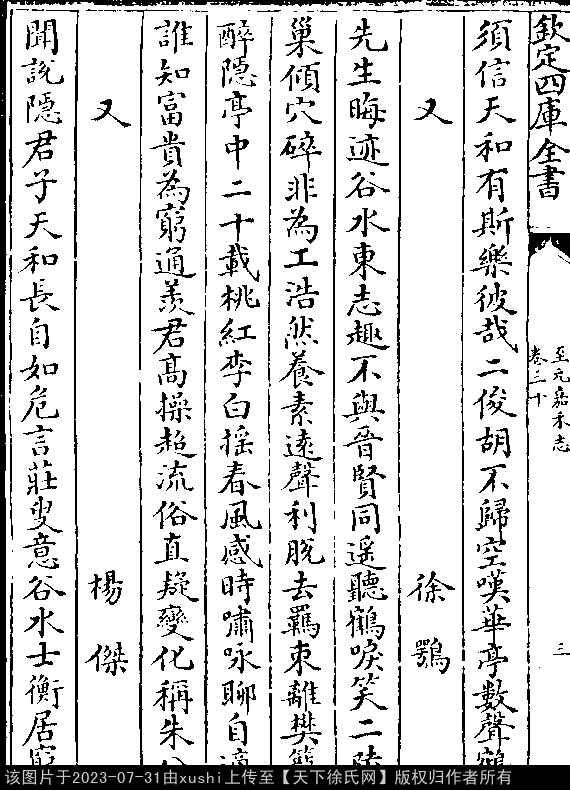 欽定四庫全書
至元嘉禾志
卷三十
三
須信天和有斯樂彼哉二俊胡不歸空嘆華亭數聲鶴
又 徐鶚
先生晦迹谷水東志趣不與晉賢同遥聽鶴唳笑二陸
巢傾穴碎非為工浩然養素遠聲利脫去羈束離樊籠
醉隠亭中二十載桃紅李白揺春風感時嘯咏聊自適
誰知富貴為窮通羨君髙操超流俗直疑變化稱朱
又 楊傑
聞說隠君子天和長自如危言莊叟意谷水士衡居窮
该图片于2023-07-31由xushi上传至【天下徐氏网】版权归作者所有